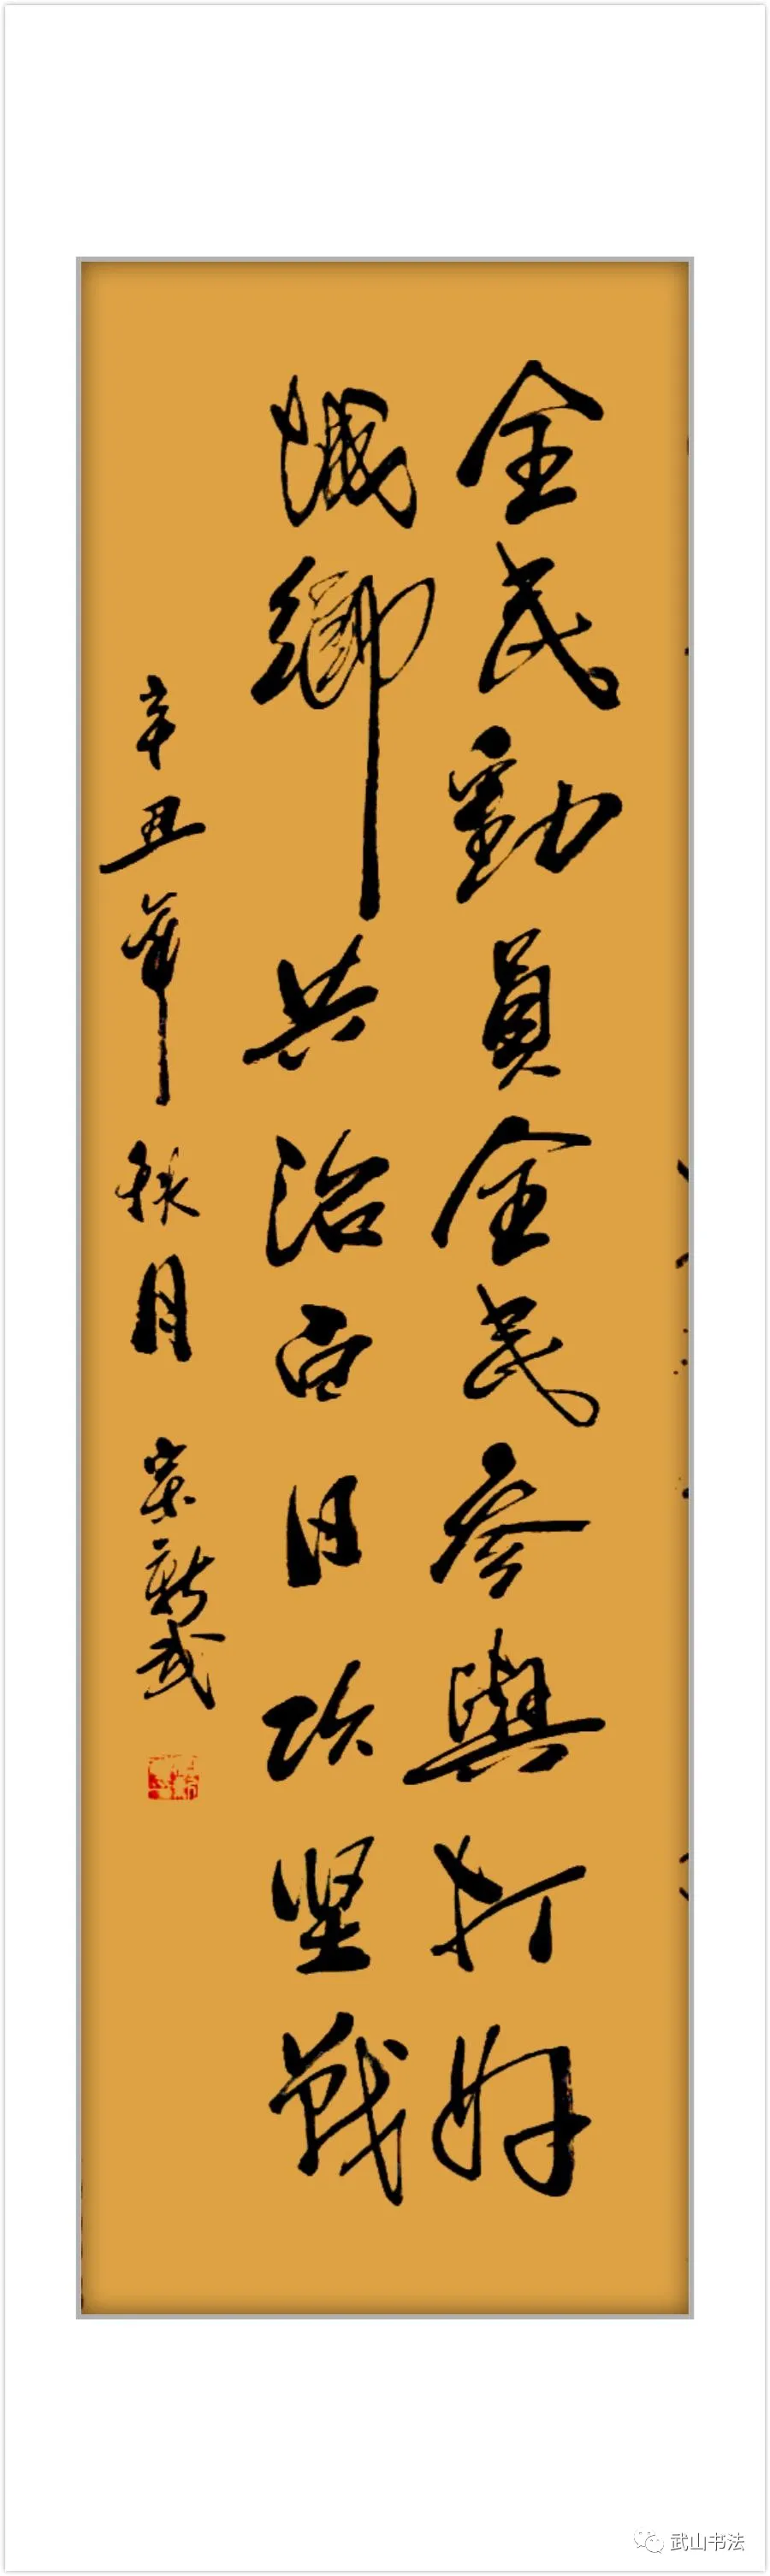 全民動員全民參與打好
城鄉共治百日攻坚戰
辛丑年秋月 宋新武
武山书法